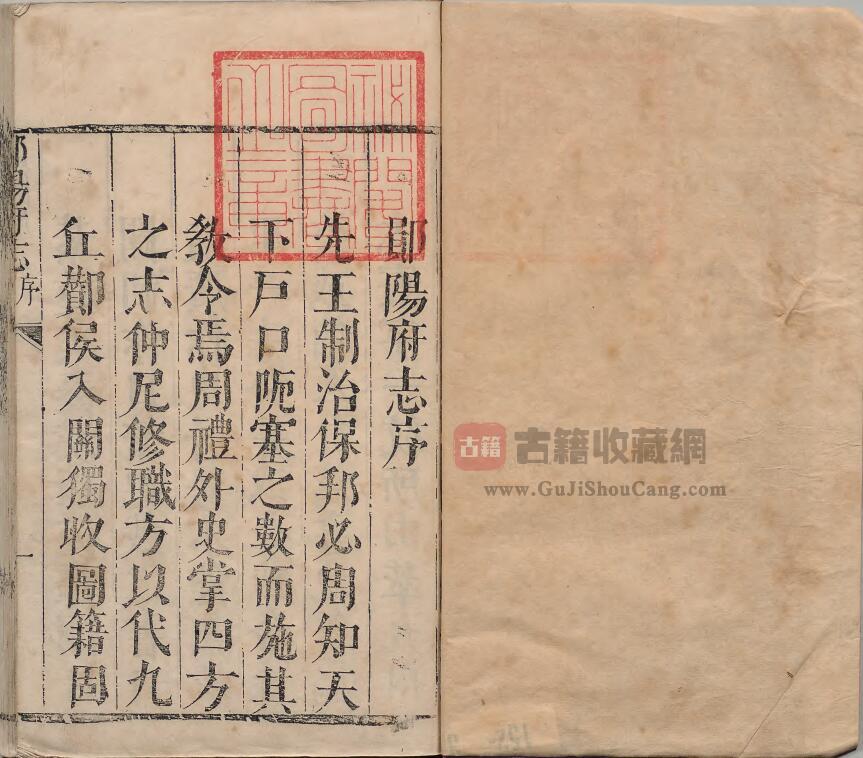 鄖陽府志序
先王制治保邦必周知天
下戸口阨塞之數而施其
敎令焉周禮外史掌四方
之志仲尼修職方以代九
丘酇侯入關獨收圖籍固
鄖陽府志序
一
古籍
古籍收藏網
www.GuJiShouCang.com